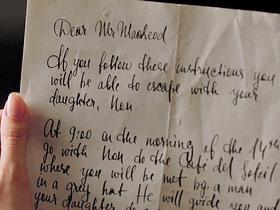 Dear Mr. Macleod
If you follow these instructions you
will be able to escape with your
daughter, Non.
At 9:00 in the morning of the 14th
go with Non do the Café del Soleil
where you will be met by a man
in a grey hat He will guide you and
your daughter to